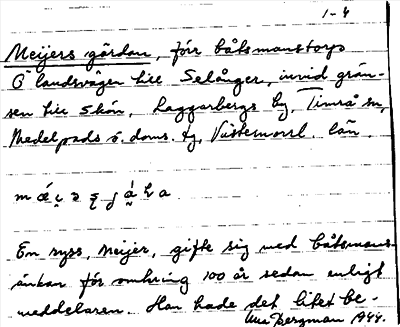 1-4
Meijers gårdan, förr båtsmanstorp
Ö landsvägen till Selånger, invid grän-
sen till Skön, Laggarbergs by, Timrå sn,
Medelpads ö. doms. tg, Västernorrl. län.
En ryss, Meijer, gifte sig med båtsmans-
änkan för omkring 100 år sedan enligt
meddelaren. Han hade det litet be-
Bergman 1944.